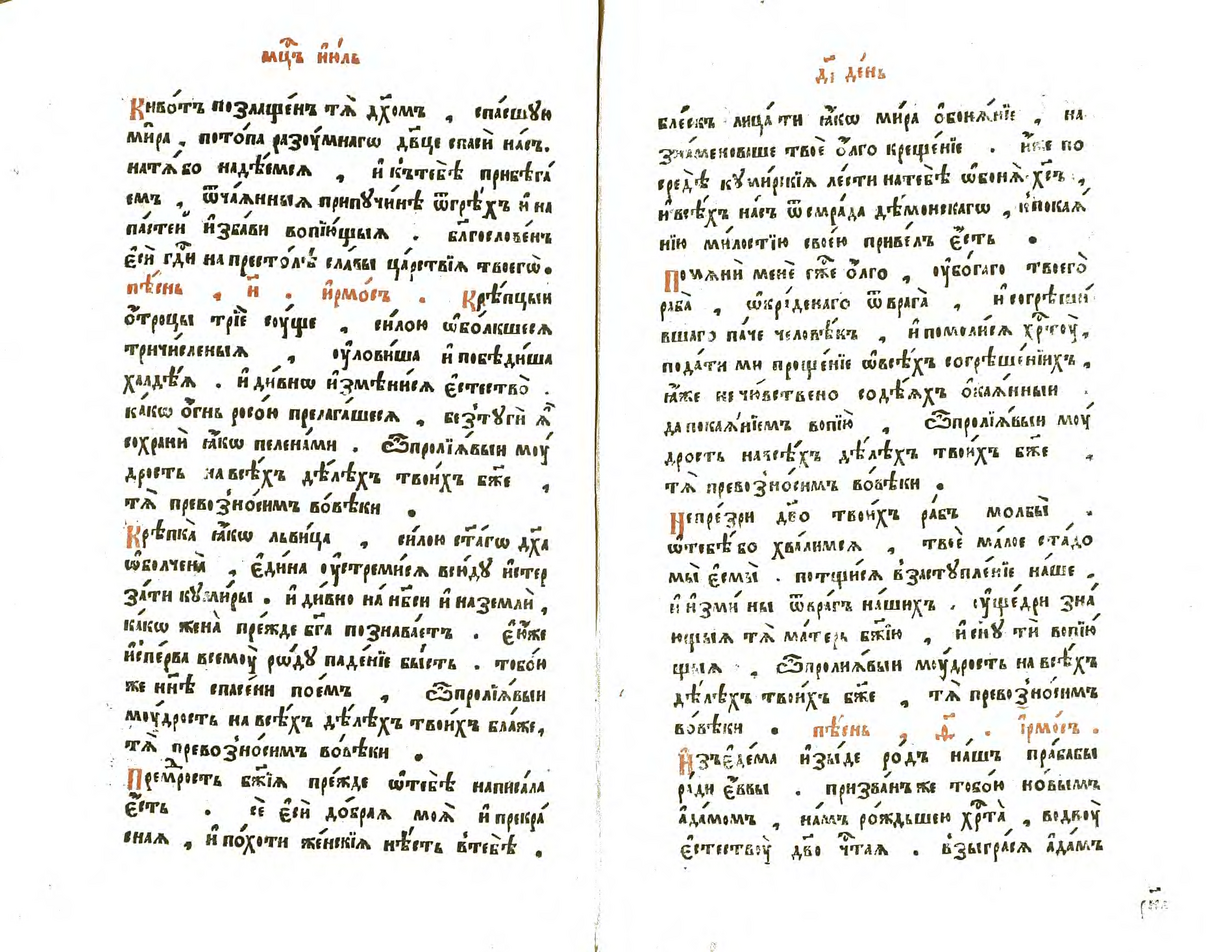 мц҃ъ и҆ю́ль
Кивѡ́тъ позлаще́нъ тѧ̀ дх҃омъ , спа́сшую
ми́ра , пото́па разо́умнагѡ дв҃це спасѝ на́съ.
натѧ́ бо надѣ́емсѧ , и҆ къ тебѣ̀ прибѣга́
емъ , ѿча́ѧнныѧ при пучи́нѣ ѿ грѣ́хъ и҆ на
па́стей и҆зба́ви вопїю́щыѧ . бл҃гослове́нъ
є҆сѝ гд҃и на престо́лѣ сла́вы ца́рствїѧ твоегѡ̀.
пѣ́снь , и҃ . і҆рмо́съ . Крѣ́пцыи
ѻ҆́троцы трїѐ су́ще , си́лою ѡ҆бо́лкшесѧ
тричи́сленыѧ , оу҆лови́ша и҆ побѣди́ша
халдѣ́ѧ . и҆ ди́внѡ и҆змѣ́нисѧ є҆стество̀ .
ка́кѡ ѻ҆́гнь росо́ю прелага́шесѧ , без̾ тугѝ ѧ҆̀
сохранѝ ꙗ҆́кѡ пелена́ми . Ѽ пролїѧ́выи моу́
дрость на всѣ́хъ дѣ́лѣхъ твои́хъ бж҃е ,
тѧ̀ превозно́симъ во́вѣки .
Крѣпка̀ ꙗ҆́кѡ льви́ца , си́лою ст҃а́гѡ дх҃а
ѡ҆болчена̀ , є҆ди́на оу҆стреми́сѧ всю́ду и҆стер
за́ти куми́ры . и҆ ди́вно на нб҃си и҆ на землѝ ,
ка́кѡ жена̀ пре́жде бг҃а познава́етъ . є҆ю́же
и҆спе́рва всемоу̀ рѡ́ду паде́нїе бы́сть . тобо́ю
же нн҃ѣ спасе́ни пое́мъ , Ѽ пролїѧ́выи
моу́дрость на всѣ́хъ дѣ́лѣхъ твои́хъ бла́же,
тѧ̀ превозно́симъ во́вѣки .
Прем҃рость бж҃їѧ пре́жде ѡ҆ тебѣ̀ написа́ла
є҆́сть . сѐ є҆сѝ до́браѧ моѧ̀ и҆ прекра́
снаѧ , и҆ по́хоти же́нскїѧ нѣ́сть в̾ тебѣ̀ .
д҃і де́нь
бле́скъ лица́ ти ꙗ҆́кѡ ми́ра ѻ҆боне́нїе , на
зна́меноваше твоѐ ѻ҆́лго креще́нїе . и҆́же по
средѣ̀ куми́рскїѧ ле́сти на тебѣ̀ ѡ҆бонѧ̀ хс҃ъ ,
и҆ всѣ́хъ на́съ ѿ смра́да де́монскагѡ , к̾ покаѧ́
нїю ми́лостїю свое́ю приве́лъ є҆́сть .
Помѧнѝ менѐ гж҃е ѻ҆́лго , оу҆бо́гаго твоего̀
раба̀ , ѡ҆кра́денаго ѿ врага̀ , и҆ согрѣши́
вшаго па́че человѣ́къ , и҆ помоли́сѧ хр҃тоу̀,
пода́ти ми проще́нїе ѡ҆ всѣ́хъ согрѣше́нїихъ ,
ꙗ҆́же не чю́вствено содѣ́ѧхъ ѻ҆каѧ́нныи .
да покаѧ́нїемъ вопїю̀ , Ѽ пролїѧ́выи моу́
дрость на всѣ́хъ дѣ́лѣхъ твои́хъ бж҃е ,
тѧ̀ превозно́симъ во́вѣки .
Непре́зри дв҃о твои́хъ ра́бъ молбы̀ .
ѡ҆ тебѣ́ бо хва́лимсѧ , твоѐ ма́лое ста́до
мы̀ є҆смы̀ . потщи́сѧ в̾ заступле́нїе на́ше ,
и҆ и҆зми́ ны ѿ вра́гъ на́шихъ . оу҆ще́дри зна́
ющыѧ тѧ̀ ма́терь бж҃їю , и҆ сн҃у ти вопїю́
щыѧ . Ѽ пролиѧ́выи моу́дрость на всѣ́хъ
дѣ́лѣхъ твои́хъ бж҃е , тѧ̀ превозно́симъ
во́вѣки . пѣ́снь , ѳ҃ . і҆рмо́съ .
Изъ є҆де́ма и҆зы́де ро́дъ на́шъ праба́бы
ра́ди є҆́ввы . призва́нъ же тобо́ю но́вымъ
а҆да́момъ , на́мъ ро́ждьшею хр҃та̀ , во двою̀
є҆стествоу̀ дв҃о чт҃аѧ . в̾зыгра́сѧ а҆да́мъ